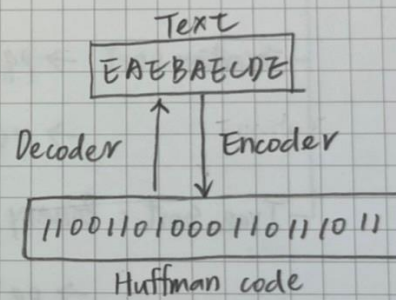 Text
EAEBAECDE
Decoder Encoder
11001101000110111011
Huffman code